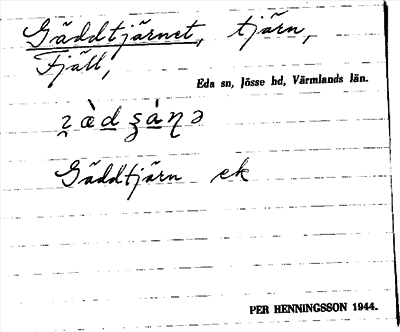 Gäddtjärnet, tjärn,
Fjäll,
Eda sn, Jösse hd, Värmlands län.
Gäddtjärn ek
PER HENNINGSSON 1944.